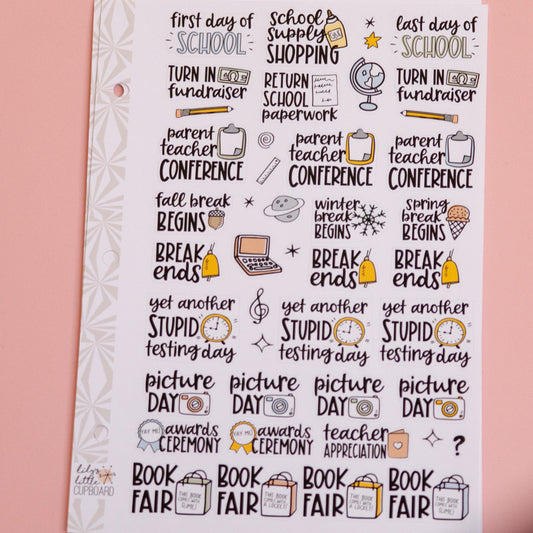 first day of
SCHOOL
school
supply
SHOPPING
last day of
SCHOOL
TURN IN
fundraiser
RETURN
SCHOOL
paperwork
TURN IN
fundraiser
parent
teacher
CONFERENCE
parent
teacher
CONFERENCE
parent
teacher
CONFERENCE
fall break
BEGINS
winter
break
BEGINS
spring
break
BEGINS
BREAK
ends
BREAK
ends
BREAK
ends
yet another
STUPID
testing day
yet another
STUPID
testing day
yet another
STUPID
testing day
picture
DAY
picture
DAY
picture
DAY
picture
DAY
YAY ME!
awards
CEREMONY
YAY ME!
awards
CEREMONY
teacher
APPRECIATION
?
BOOK
FAIR
THIS BOOK
COMES WITH
SLIME!
BOOK
FAIR
THIS BOOK
COMES WITH
A LOCKET!
BOOK
FAIR
THIS BOOK
COMES WITH
A LOCKET!
BOOK
FAIR
THIS BOOK
COMES WITH
SLIME!
lily's
little
CUPBOARD